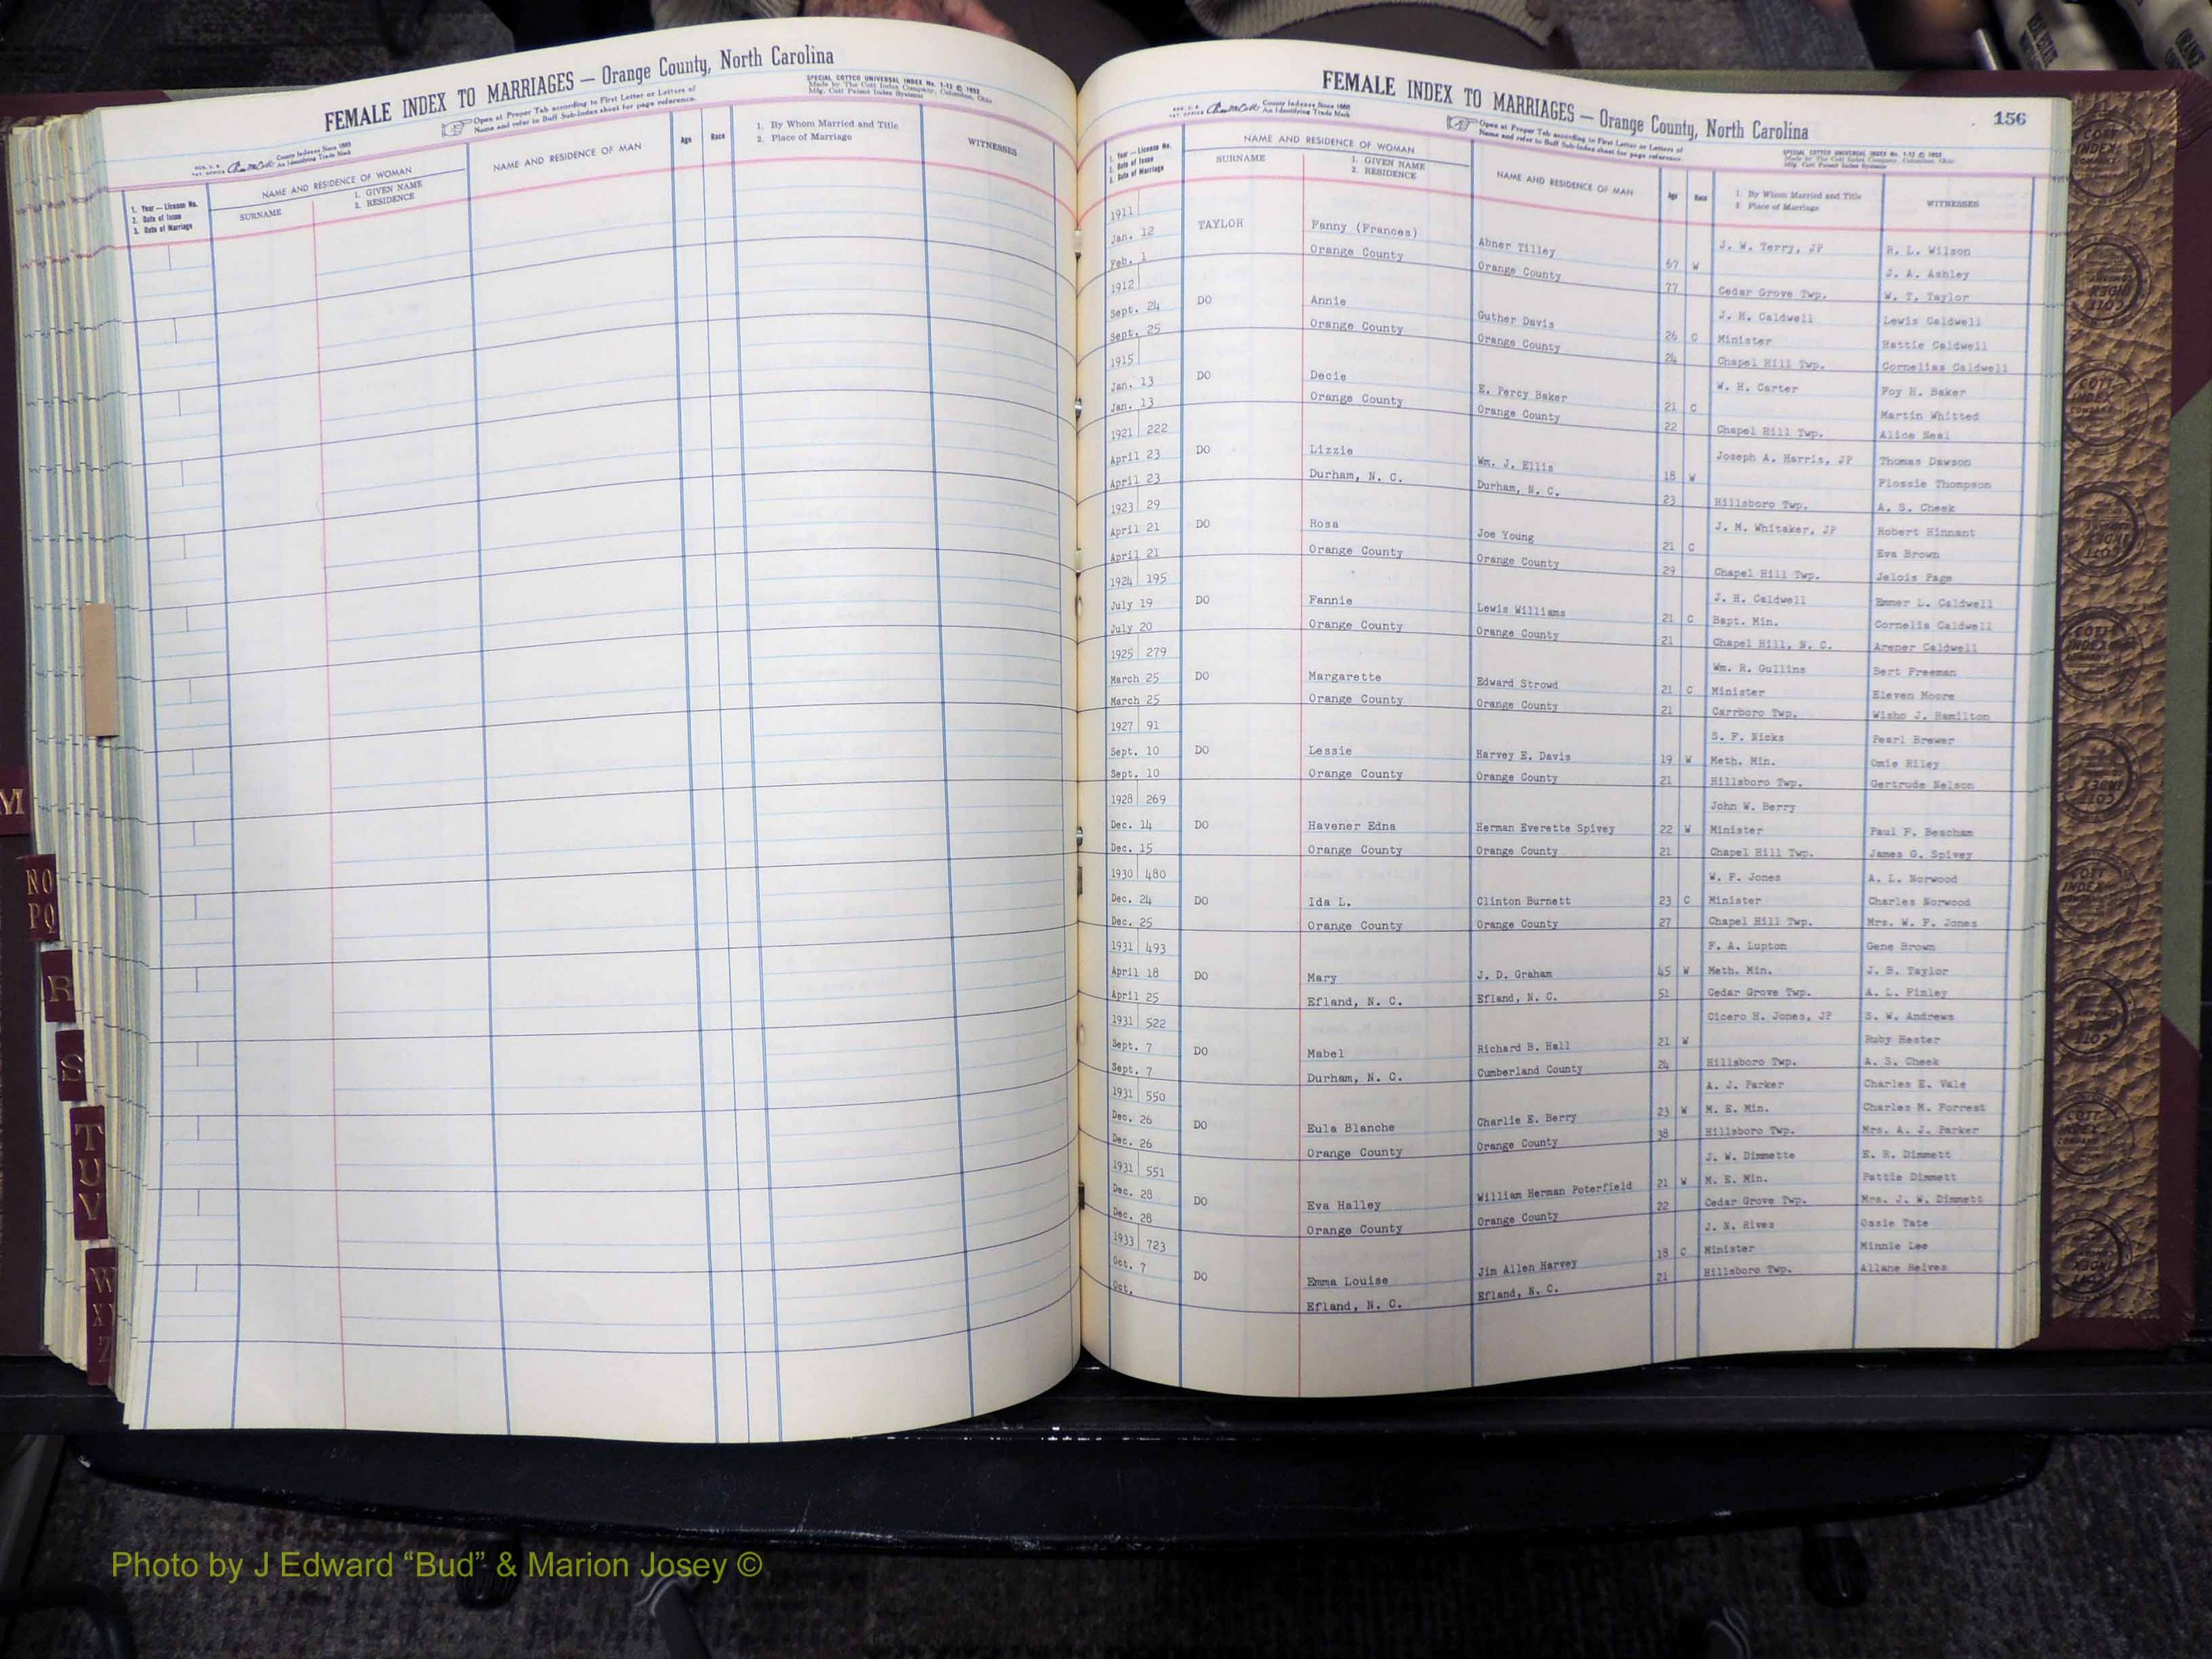 FEMALE INDEX TO MARRIAGES — Orange County, North Carolina
Open at Proper Tab according to First Letter or Letters of
Name and refer to Buff Sub-Index sheet for page reference.
SPECIAL COTTCO UNIVERSAL INDEX No. 1-12 © 1952
Made by The Cott Index Company, Columbus, Ohio
Mfg. Cott Patent Index Systems
County Indexes Since 1888
An Identifying Trade Mark
1. Year — License No.
2. Date of Issue
3. Date of Marriage
NAME AND RESIDENCE OF WOMAN
SURNAME
1. GIVEN NAME
2. RESIDENCE
NAME AND RESIDENCE OF MAN
Age
Race
1. By Whom Married and Title
2. Place of Marriage
WITNESSES
FEMALE INDEX TO MARRIAGES — Orange County, North Carolina
156
County Indexes Since 1888
An Identifying Trade Mark
Open at Proper Tab according to First Letter or Letters of
Name and refer to Buff Sub-Index sheet for page reference.
SPECIAL COTTCO UNIVERSAL INDEX No. 1-12 © 1952
Made by The Cott Index Company, Columbus, Ohio
Mfg. Cott Patent Index Systems
1. Year — License No.
2. Date of Issue
3. Date of Marriage
NAME AND RESIDENCE OF WOMAN
SURNAME
1. GIVEN NAME
2. RESIDENCE
NAME AND RESIDENCE OF MAN
Age
Race
1. By Whom Married and Title
2. Place of Marriage
WITNESSES
1911 J. W. Terry, JP R. L. Wilson
Jan. 12 TAYLOR Fanny (Frances) Abner Tilley 67 W J. A. Ashley
Feb. 1 Orange County Orange County 77 Cedar Grove Twp. W. T. Taylor
1912 J. H. Caldwell Lewis Caldwell
Sept. 24 DO Annie Guther Davis 26 C Minister Hattie Caldwell
Sept. 25 Orange County Orange County 24 Chapel Hill Twp. Cornelias Caldwell
1915 W. H. Carter Foy H. Baker
Jan. 13 DO Decie E. Percy Baker 21 C Martin Whitted
Jan. 13 Orange County Orange County 22 Chapel Hill Twp. Alice Neal
1921 222 Joseph A. Harris, JP Thomas Dawson
April 23 DO Lizzie Wm. J. Ellis 18 W Flossie Thompson
April 23 Durham, N. C. Durham, N. C. 23 Hillsboro Twp. A. S. Cheek
1923 29 J. M. Whitaker, JP Robert Hinnant
April 21 DO Rosa Joe Young 21 C Eva Brown
April 21 Orange County Orange County 29 Chapel Hill Twp. Jelois Page
1924 195 J. H. Caldwell Emmer L. Caldwell
July 19 DO Fannie Lewis Williams 21 C Bapt. Min. Cornelia Caldwell
July 20 Orange County Orange County 21 Chapel Hill, N. C. Arener Caldwell
1925 279 Wm. R. Gullins Bert Freeman
March 25 DO Margarette Edward Strowd 21 C Minister Eleven Moore
March 25 Orange County Orange County 21 Carrboro Twp. Wisho J. Hamilton
1927 91 S. F. Nicks Pearl Brewer
Sept. 10 DO Lessie Harvey E. Davis 19 W Meth. Min. Omie Riley
Sept. 10 Orange County Orange County 21 Hillsboro Twp. Gertrude Nelson
1928 269 John W. Berry
Dec. 14 DO Havener Edna Herman Everette Spivey 22 W Minister Paul F. Beacham
Dec. 15 Orange County Orange County 21 Chapel Hill Twp. James G. Spivey
1930 480 W. F. Jones A. L. Norwood
Dec. 24 DO Ida L. Clinton Burnett 23 C Minister Charles Norwood
Dec. 25 Orange County Orange County 27 Chapel Hill Twp. Mrs. W. F. Jones
1931 493 F. A. Lupton Gene Brown
April 18 DO Mary J. D. Graham 45 W Meth. Min. J. B. Taylor
April 25 Efland, N. C. Efland, N. C. 51 Cedar Grove Twp. A. L. Finley
1931 522 Cicero H. Jones, JP S. W. Andrews
Sept. 7 DO Mabel Richard B. Hall 21 W Ruby Hester
Sept. 7 Durham, N. C. Cumberland County 24 Hillsboro Twp. A. S. Cheek
1931 550 A. J. Parker Charles E. Vale
Dec. 26 DO Eula Blanche Charlie E. Berry 23 W M. E. Min. Charles M. Forrest
Dec. 26 Orange County Orange County 38 Hillsboro Twp. Mrs. A. J. Parker
1931 551 J. W. Dimmette E. R. Dimmett
Dec. 28 DO Eva Halley William Herman Poterfield 21 W M. E. Min. Pattie Dimmett
Dec. 28 Orange County Orange County 22 Cedar Grove Twp. Mrs. J. W. Dimmett
1933 723 J. N. Rives Ossie Tate
Oct. 7 DO Emma Louise Jim Allen Harvey 18 C Minister Minnie Lee
Oct. Efland, N. C. Efland, N. C. 21 Hillsboro Twp. Allane Reives
M
NO
PQ
R
S
T
U
V
W
X Y
Z
Photo by J Edward “Bud” & Marion Josey ©